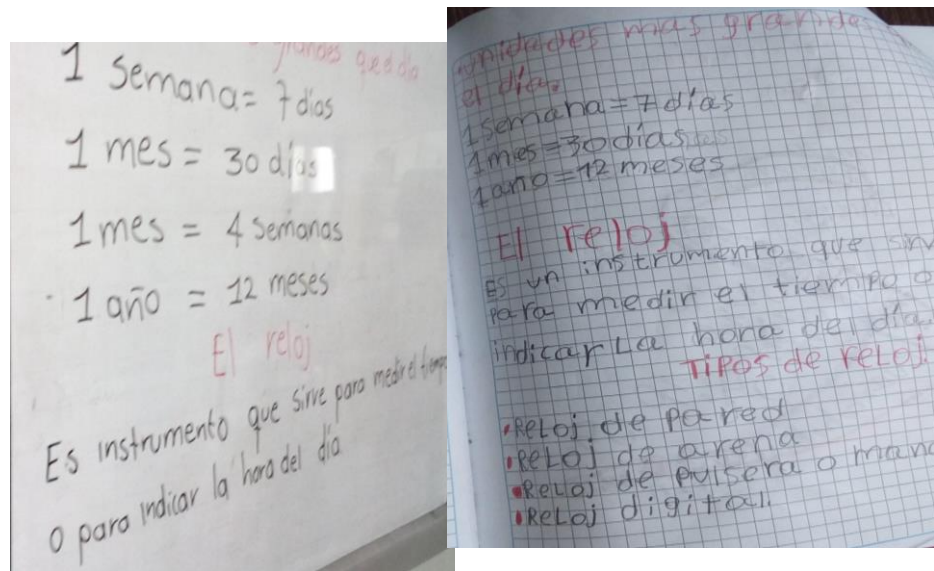 grandes que día
1 Semana = 7 días
1 mes = 30 días
1 mes = 4 Semanas
1 año = 12 meses
El reloj
Es instrumento que Sirve para medir el tiempo
o para indicar la hora del día
unidades mas grandes
el día.
1 semana = 7 días
1 mes = 30 días
1 año = 12 meses
El reloj
Es un instrumento que sirv
Para medir el tiempo o
indicar La hora del día.
Tipos de reloj.
•Reloj de Pared
•Reloj de arena
•Reloj de pulsera o mano
•Reloj digital.